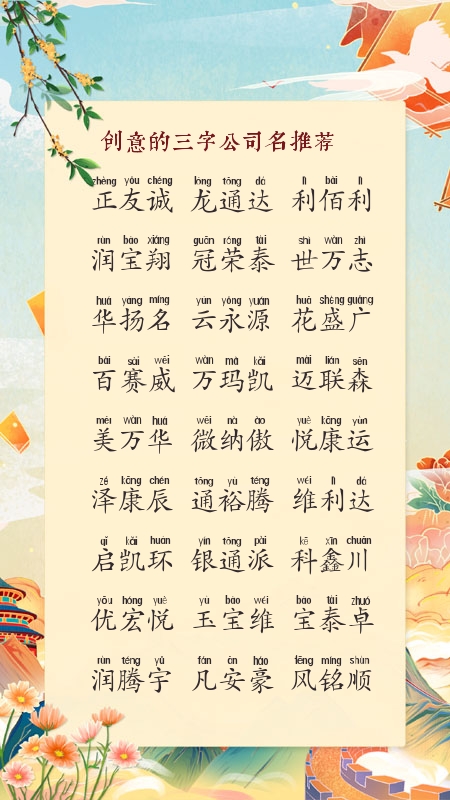 创意的三字公司名推荐
zhèng yǒu chéng lóng tōng dá lì bǎi lì
正友诚 龙通达 利佰利
rùn bǎo xiáng guān róng tài shì wàn zhì
润宝翔 冠荣泰 世万志
huá yáng míng yún yǒng yuán huā shèng guǎng
华扬名 云永源 花盛广
bǎi sài wēi wàn mǎ kǎi mài lián sēn
百赛威 万玛凯 迈联森
měi wàn huá wēi nà ào yuè kāng yùn
美万华 微纳傲 悦康运
zé kāng chén tōng yù téng wéi lì dá
泽康辰 通裕腾 维利达
qǐ kǎi huán yín tōng pài kē xīn chuān
启凯环 银通派 科鑫川
yōu hóng yuè yù bǎo wéi bǎo tài zhuó
优宏悦 玉宝维 宝泰卓
rùn téng yǔ fán ān háo fēng míng shùn
润腾宇 凡安豪 风铭顺